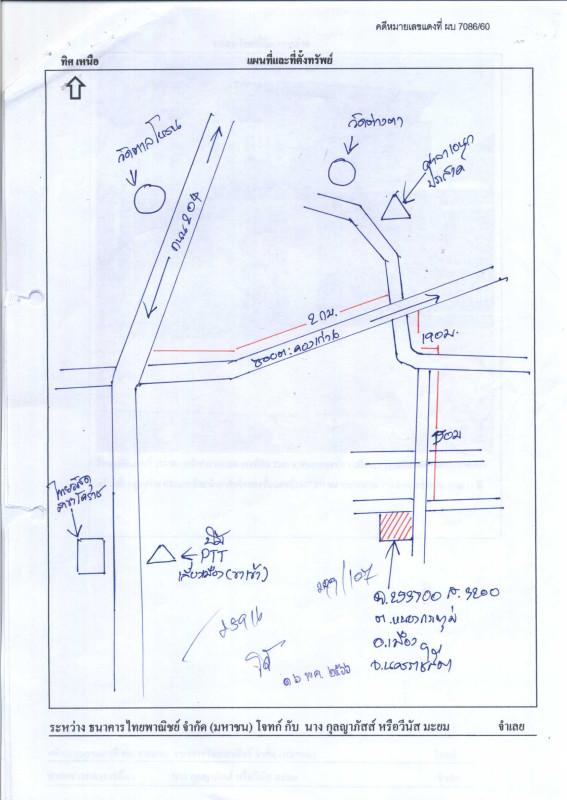 คดีหมายเลขแดงที่ ผบ 7086/60
ทิศ เหนือ
แผนที่และที่ตั้งทรัพย์
วัดตาลโหรน
วัดต่างตา
ศาลาเอนก
ประสงค์
ถนน 204
2 กม.
ซอยตะคองเก่า
190 ม.
50 ม
ไทยวัสดุ
สาขาโคราช
ปั๊ม
PTT
เลี่ยงเมือง (ขาเข้า)
239/107
ต.หนองกระทุ่ม
อ.เมือง
จ.นครราชสีมา
๑๖ พ.ค. ๒๕๖๖
ระหว่าง ธนาคารไทยพาณิชย์ จำกัด (มหาชน) โจทก์ กับ นาง กุลญาภัสส์ หรือวีนัส มะยม จำเลย